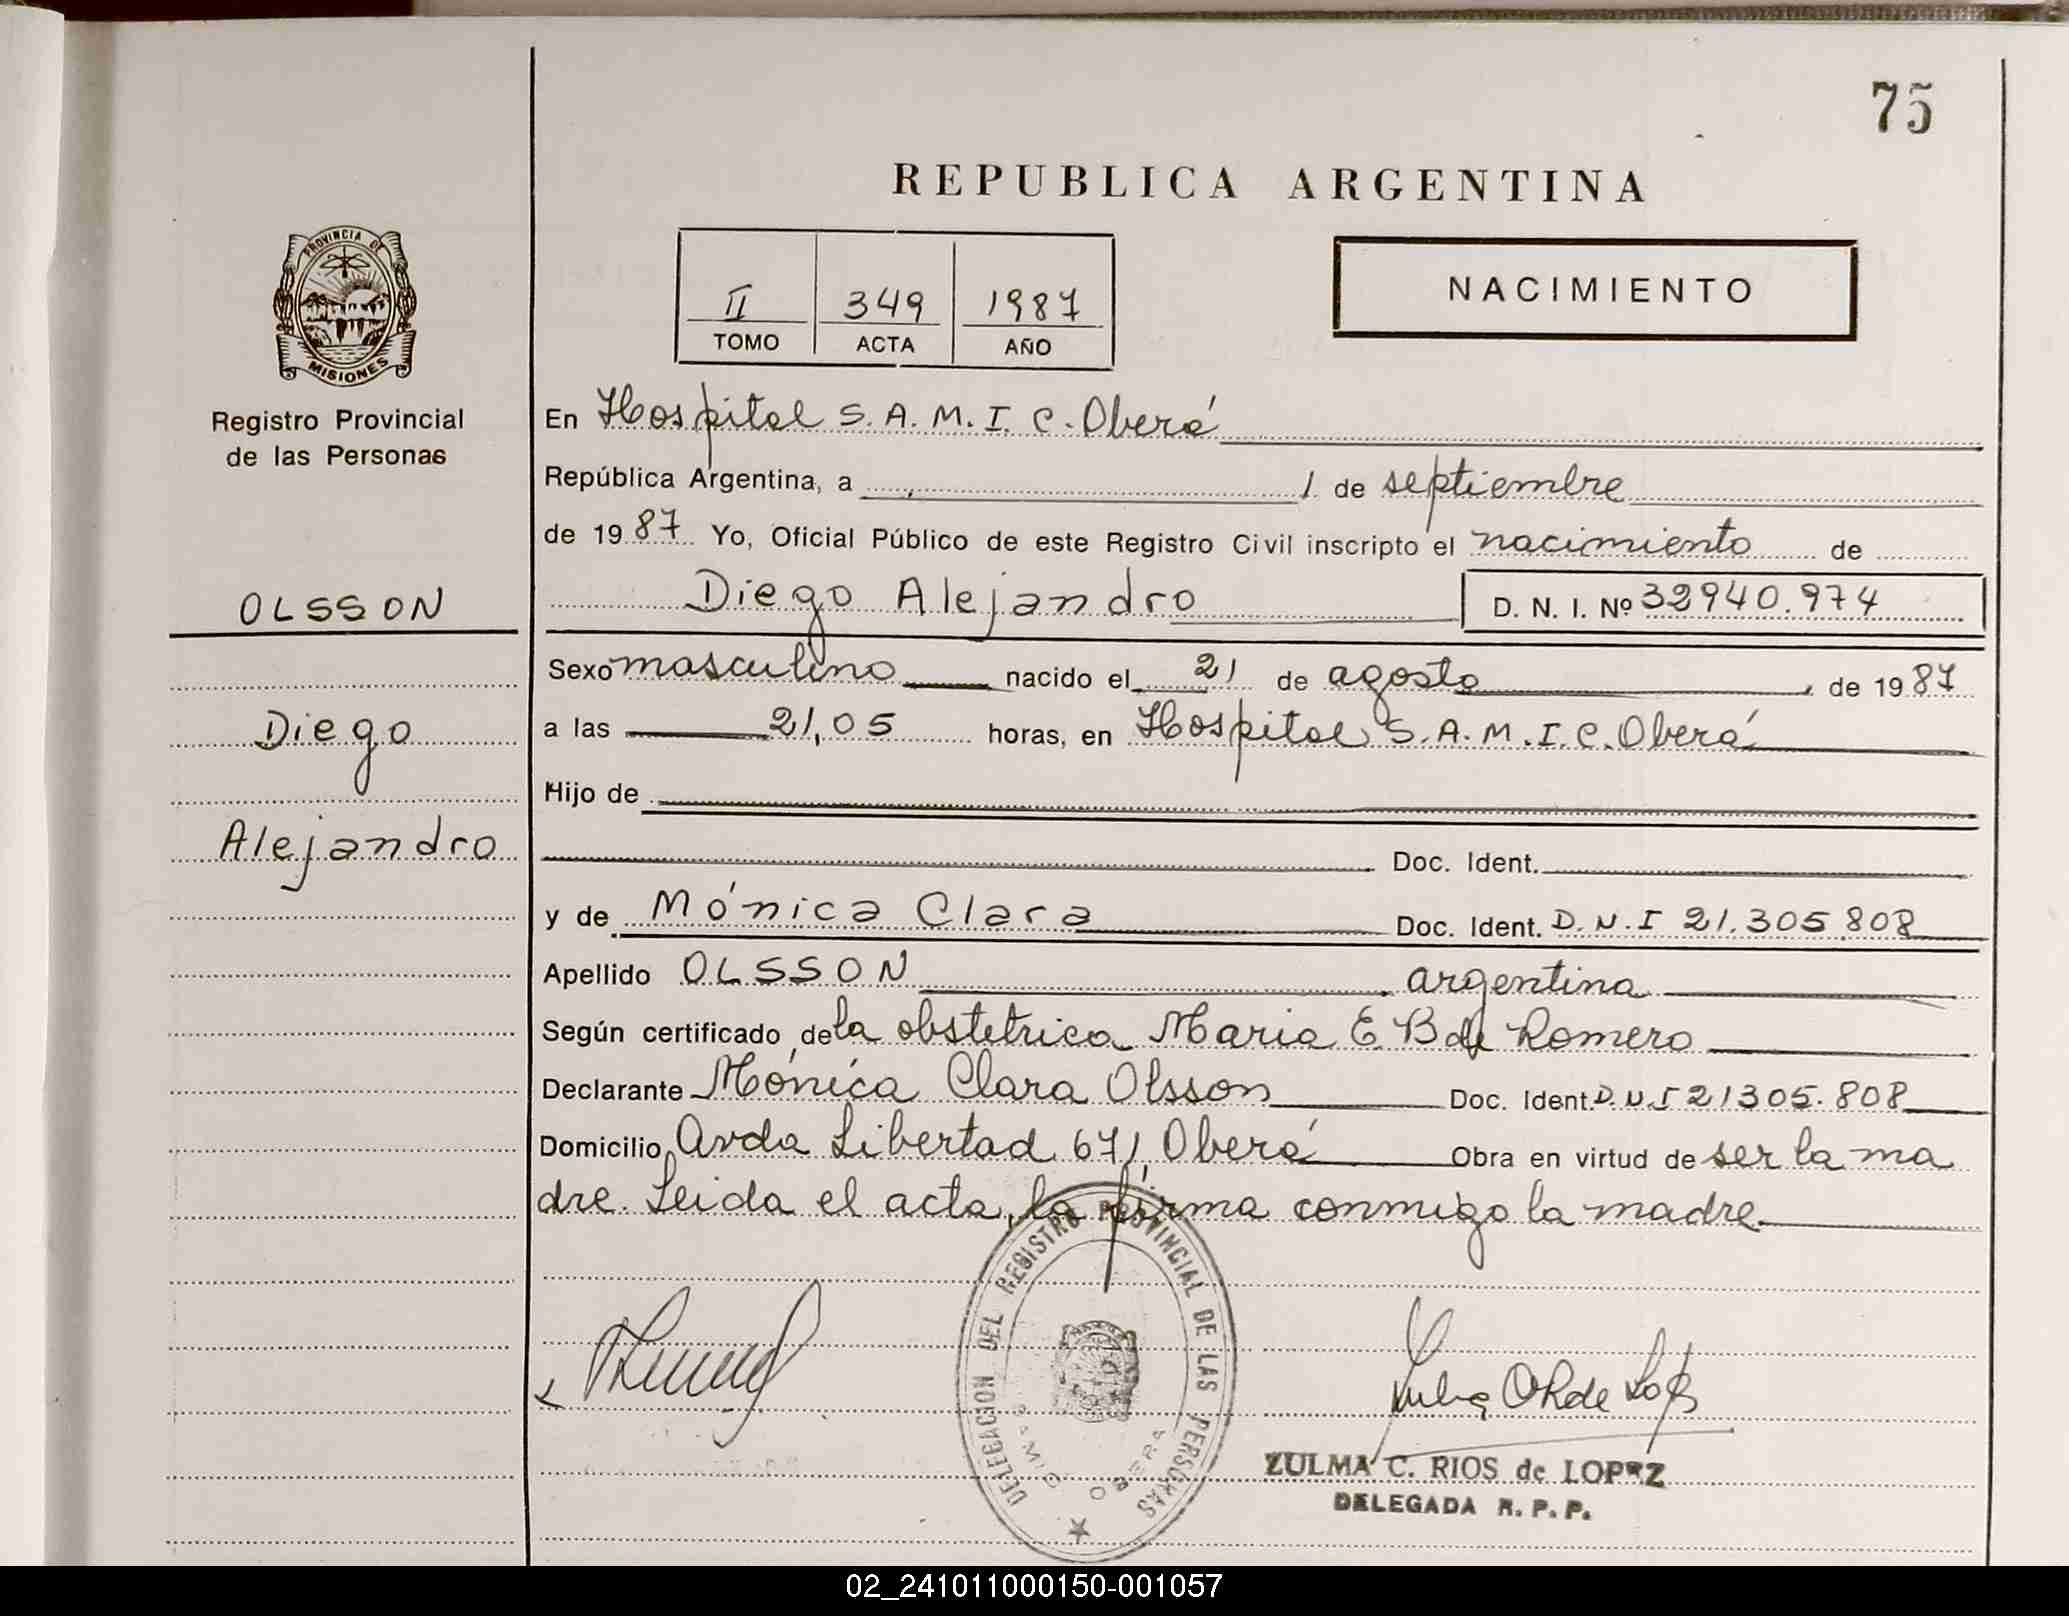 75
REPUBLICA ARGENTINA
PROVINCIA DE
MISIONES
Registro Provincial
de las Personas
II 349 1987
TOMO ACTA AÑO
NACIMIENTO
En Hospital S.A.M.I.C. Oberá
República Argentina, a 1 de septiembre
de 1987 Yo, Oficial Público de este Registro Civil inscripto el nacimiento de
OLSSON
Diego Alejandro D. N. I. Nº 32940.974
Sexo masculino nacido el 21 de agosto, de 1987
Diego
a las 21,05 horas, en Hospital S.A.M.I.C. Oberá
Hijo de
Alejandro
Doc. Ident.
y de Mónica Clara Doc. Ident. D.N.I 21.305.808
Apellido OLSSON argentina
Según certificado de la obstetrica Maria E. B de Romero
Declarante Mónica Clara Olsson Doc. Ident. D.N.I 21305.808
Domicilio Avda Libertad 671, Oberá Obra en virtud de ser la ma
dre. Leida el acta, la firma conmigo la madre
DELEGACION DEL REGISTRO PROVINCIAL DE LAS PERSONAS
OBERA
ZULMA C. RIOS de LOPEZ
DELEGADA R. P. P.
02_241011000150-001057